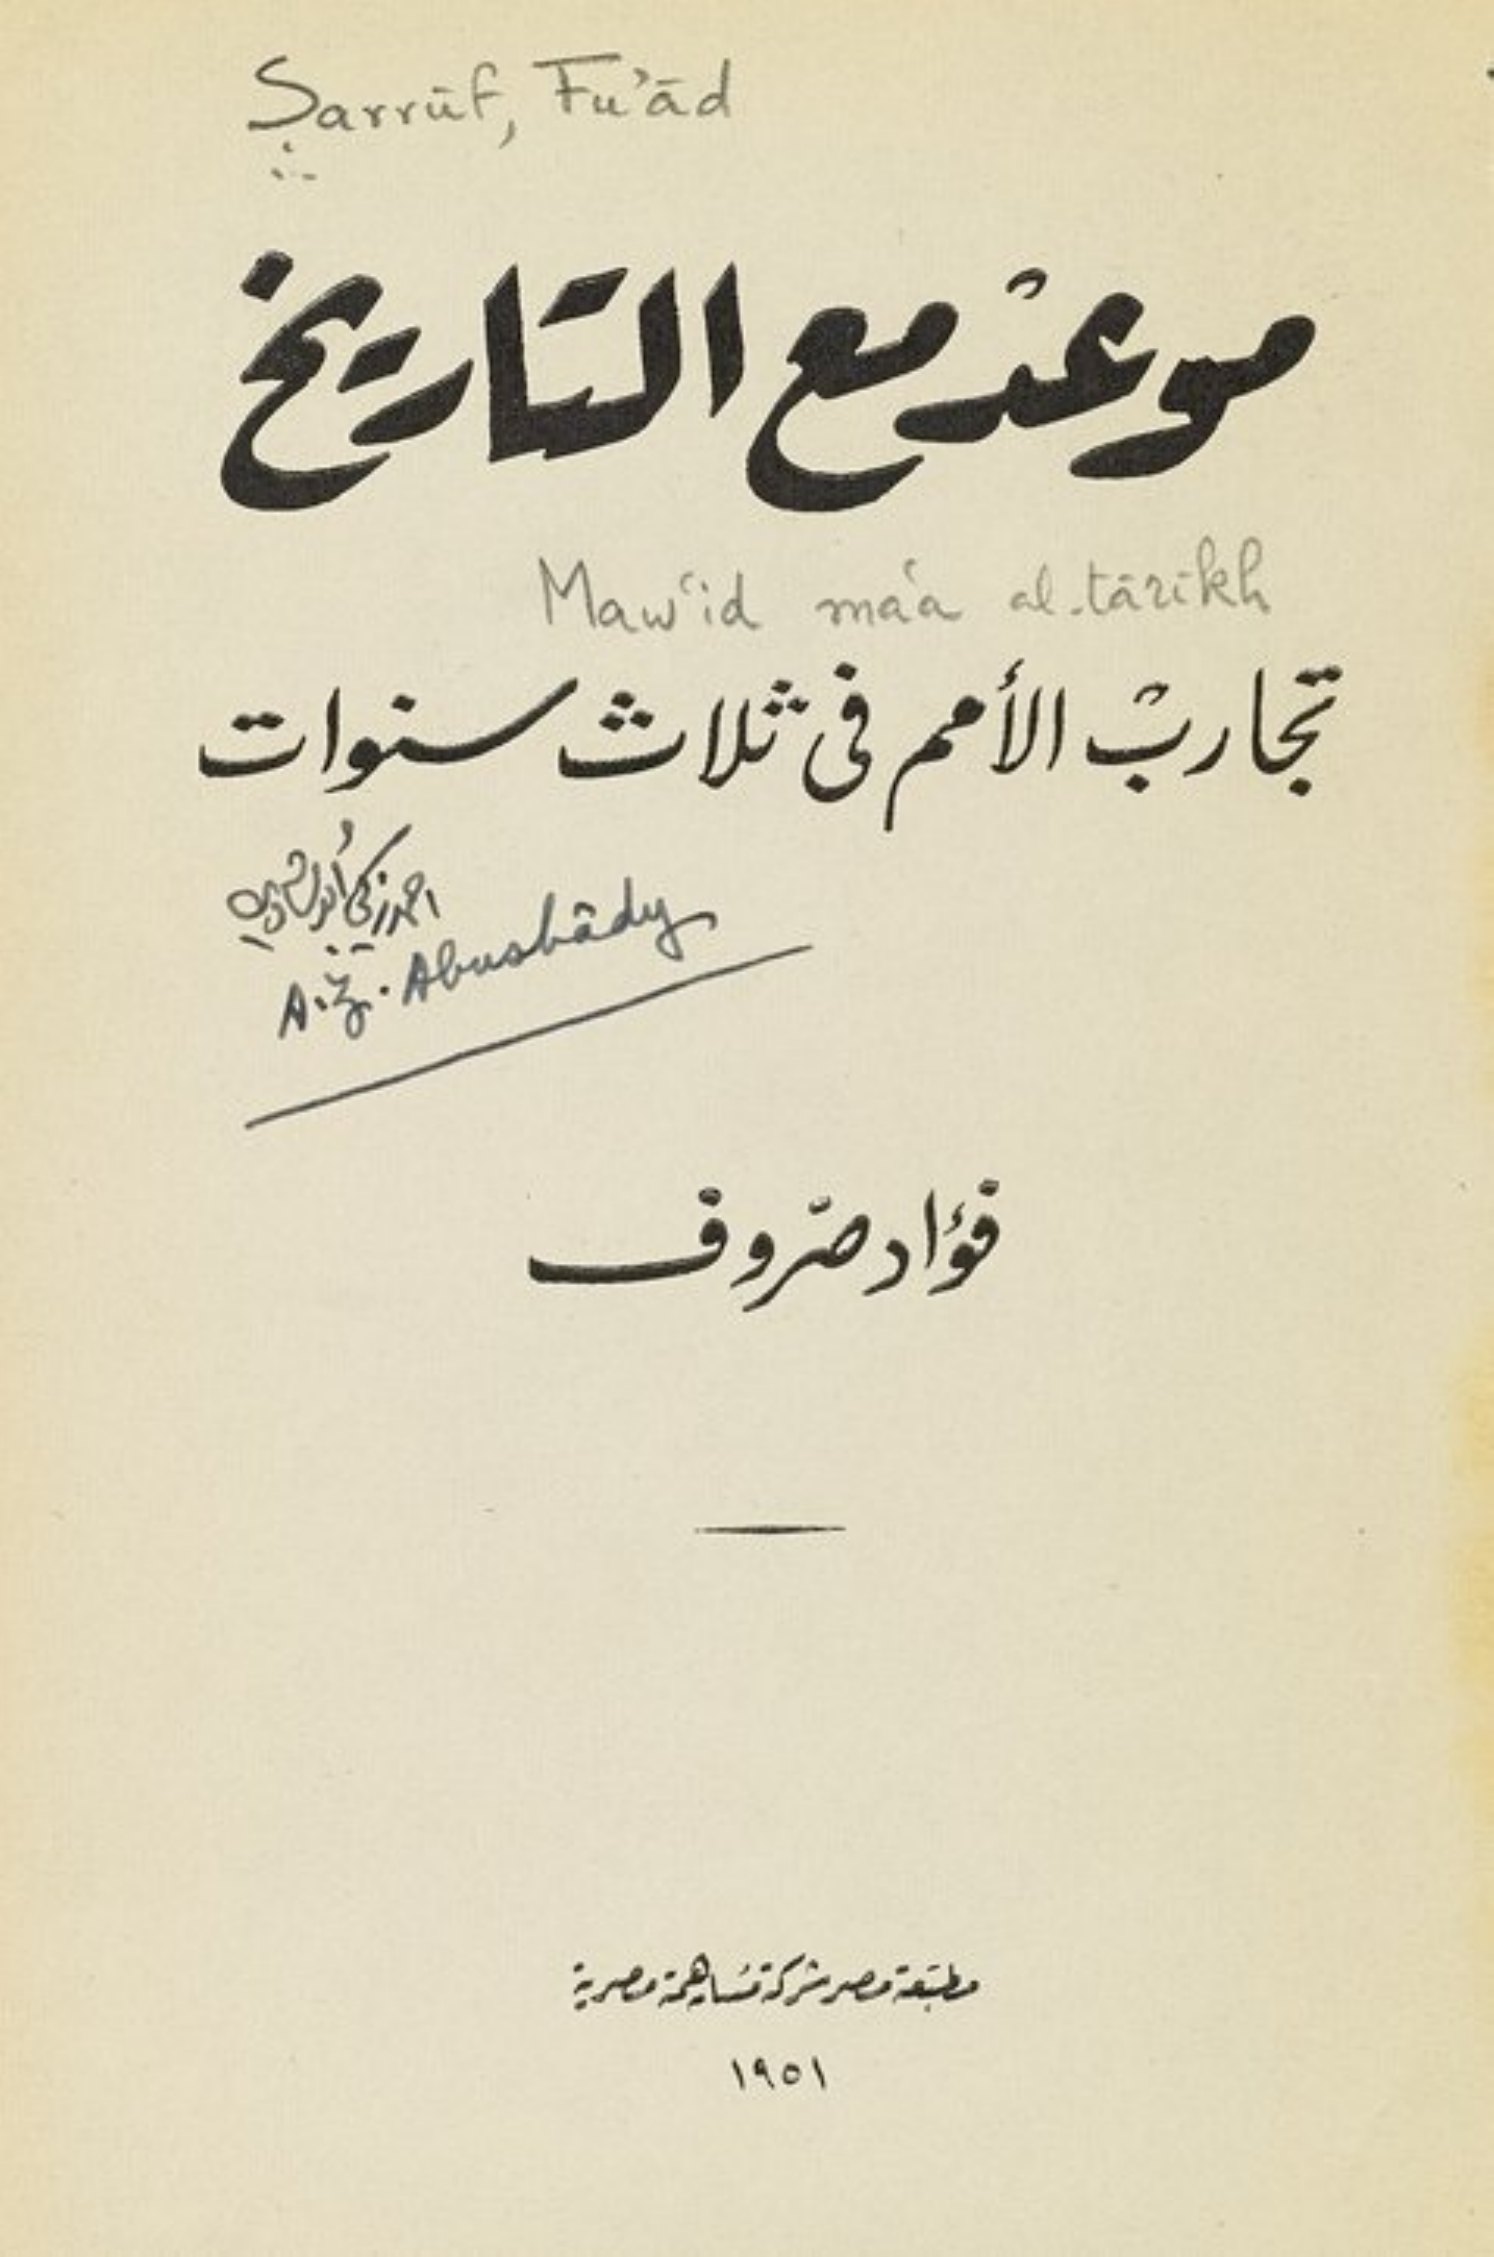 Ṣarrūf, Fu'ād
موعد مع التاريخ
Maw'id ma'a al-tārīkh
تجارب الأمم فى ثلاث سنوات
احمد زكي أبو شادي
A.Z. Abushâdy
فؤاد صرّوف
مطبعة مصر شركة مساهمة مصرية
١٩٥١